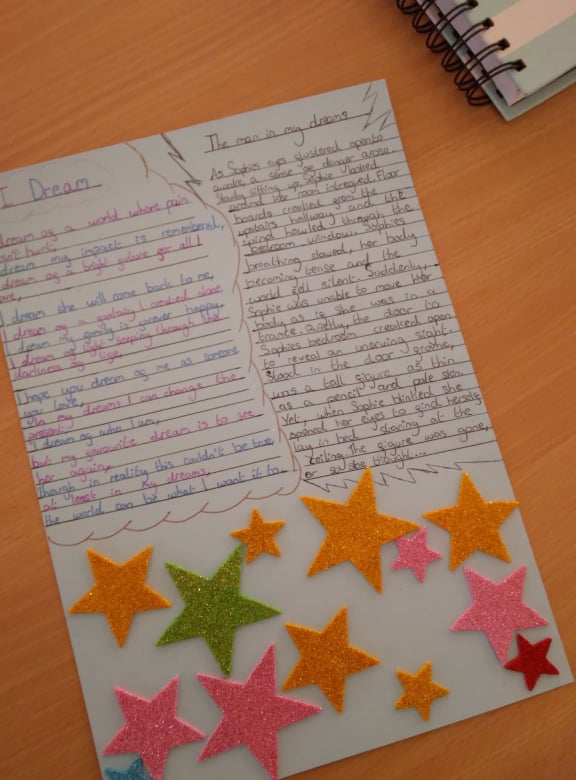 I Dream
I dream of a world where pain
isn't hurt,
I dream my impact is remembered,
I dream of a bright future for all I
love,
I dream she will come back to me,
I dream of a fantasy I created alone
I dream my family is forever happy,
I dream of light seeping through the
darkness of life,
I hope you dream of me as someone
you love,
In my dreams I can change the
present,
I dream of who I am,
but my favourite dream is to see
her again,
Though in reality this couldn't be true,
at least in my dreams,
the world can be what I want it to
The man in my dreams
As Sophies eyes flustered open to
awake, a sense of danger arose.
Slowly sitting up, Sophie looked
around her room intregued. Floor
boards creaked from the
upstairs hallway and the
wind howled through the
bedroom window. Sophies
breathing slowed, her body
becoming tense and the
world fell silent. Suddenly,
Sophie was unable to move her
body as if she was in a
trance. Quietly, the door to
Sophies bedroom creaked open
to reveal an unerving sight.
Stood in the door frame,
was a tall figure as thin
as a pencil and pale skin.
Yet, when Sophie blinked she
opened her eyes to find herself
lay in bed staring at the
ceiling. The figure was gone,
or so she thought...